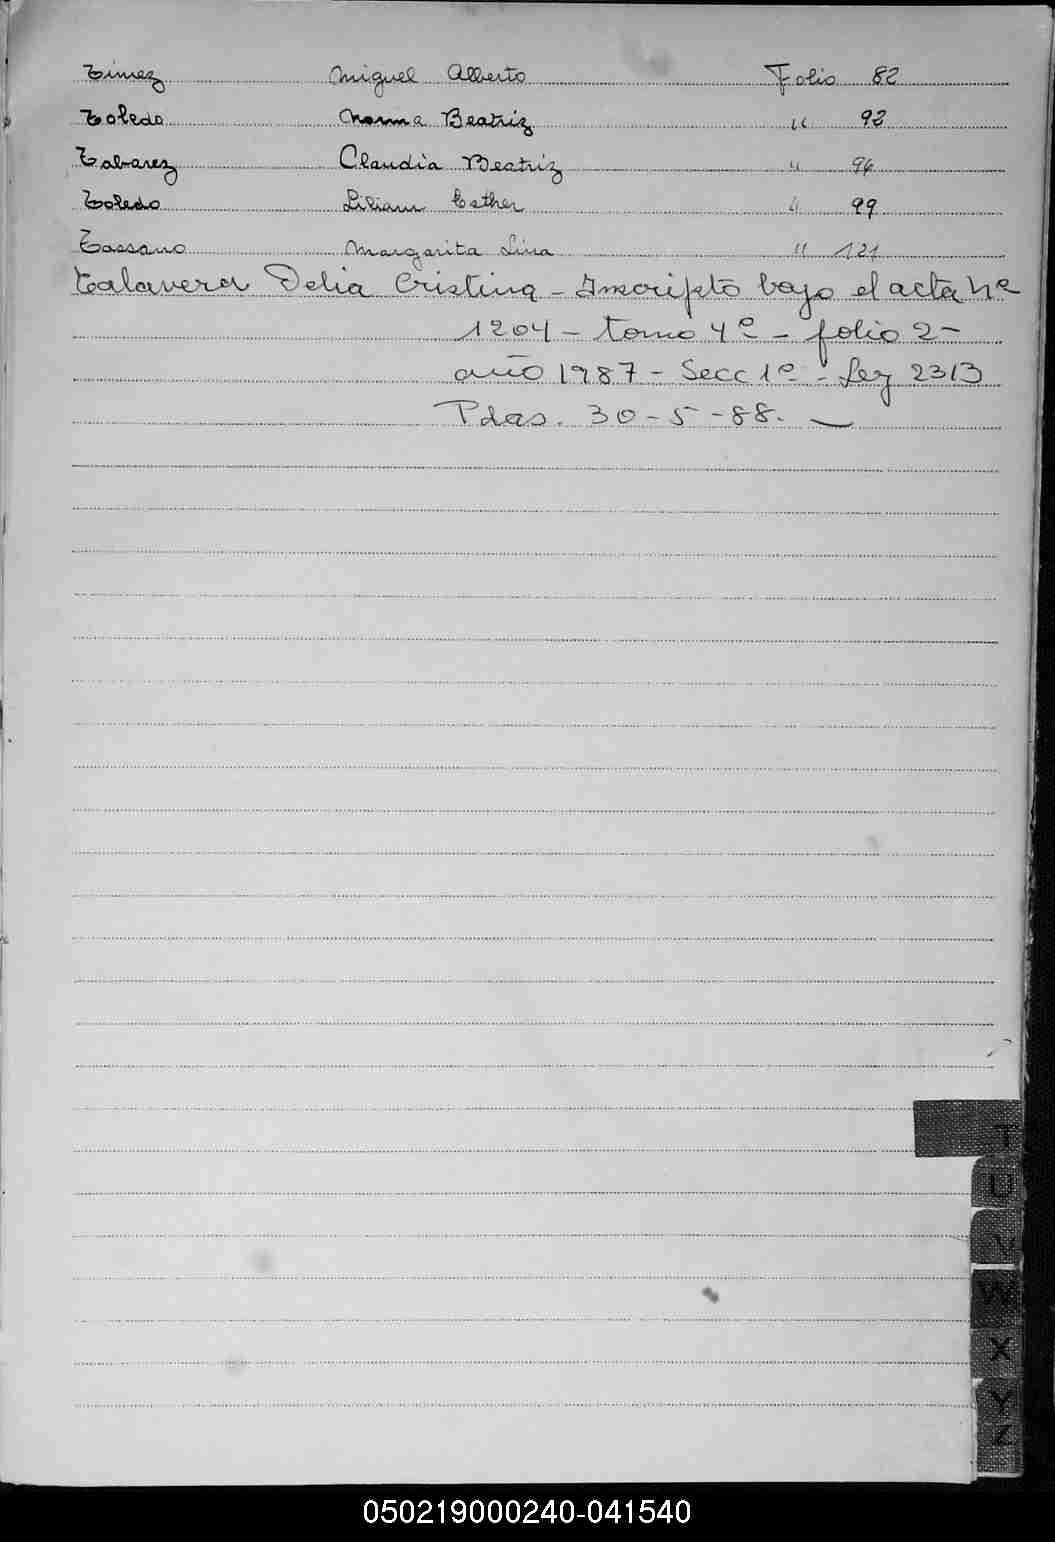 Timez Miguel Alberto Folio 82
Toledo Norma Beatriz " 92
Tabarez Claudia Beatriz " 94
Toledo Liliam Esther " 99
Tassano Margarita Lina " 121
Talavera Delia Cristina - Inscripto bajo el acta Nº
1204 - tomo 4º - folio 2 -
año 1987 - Secc 1º - Ley 2313
Pdas. 30-5-88.
T
U
V
W
X
Y
Z
050219000240-041540